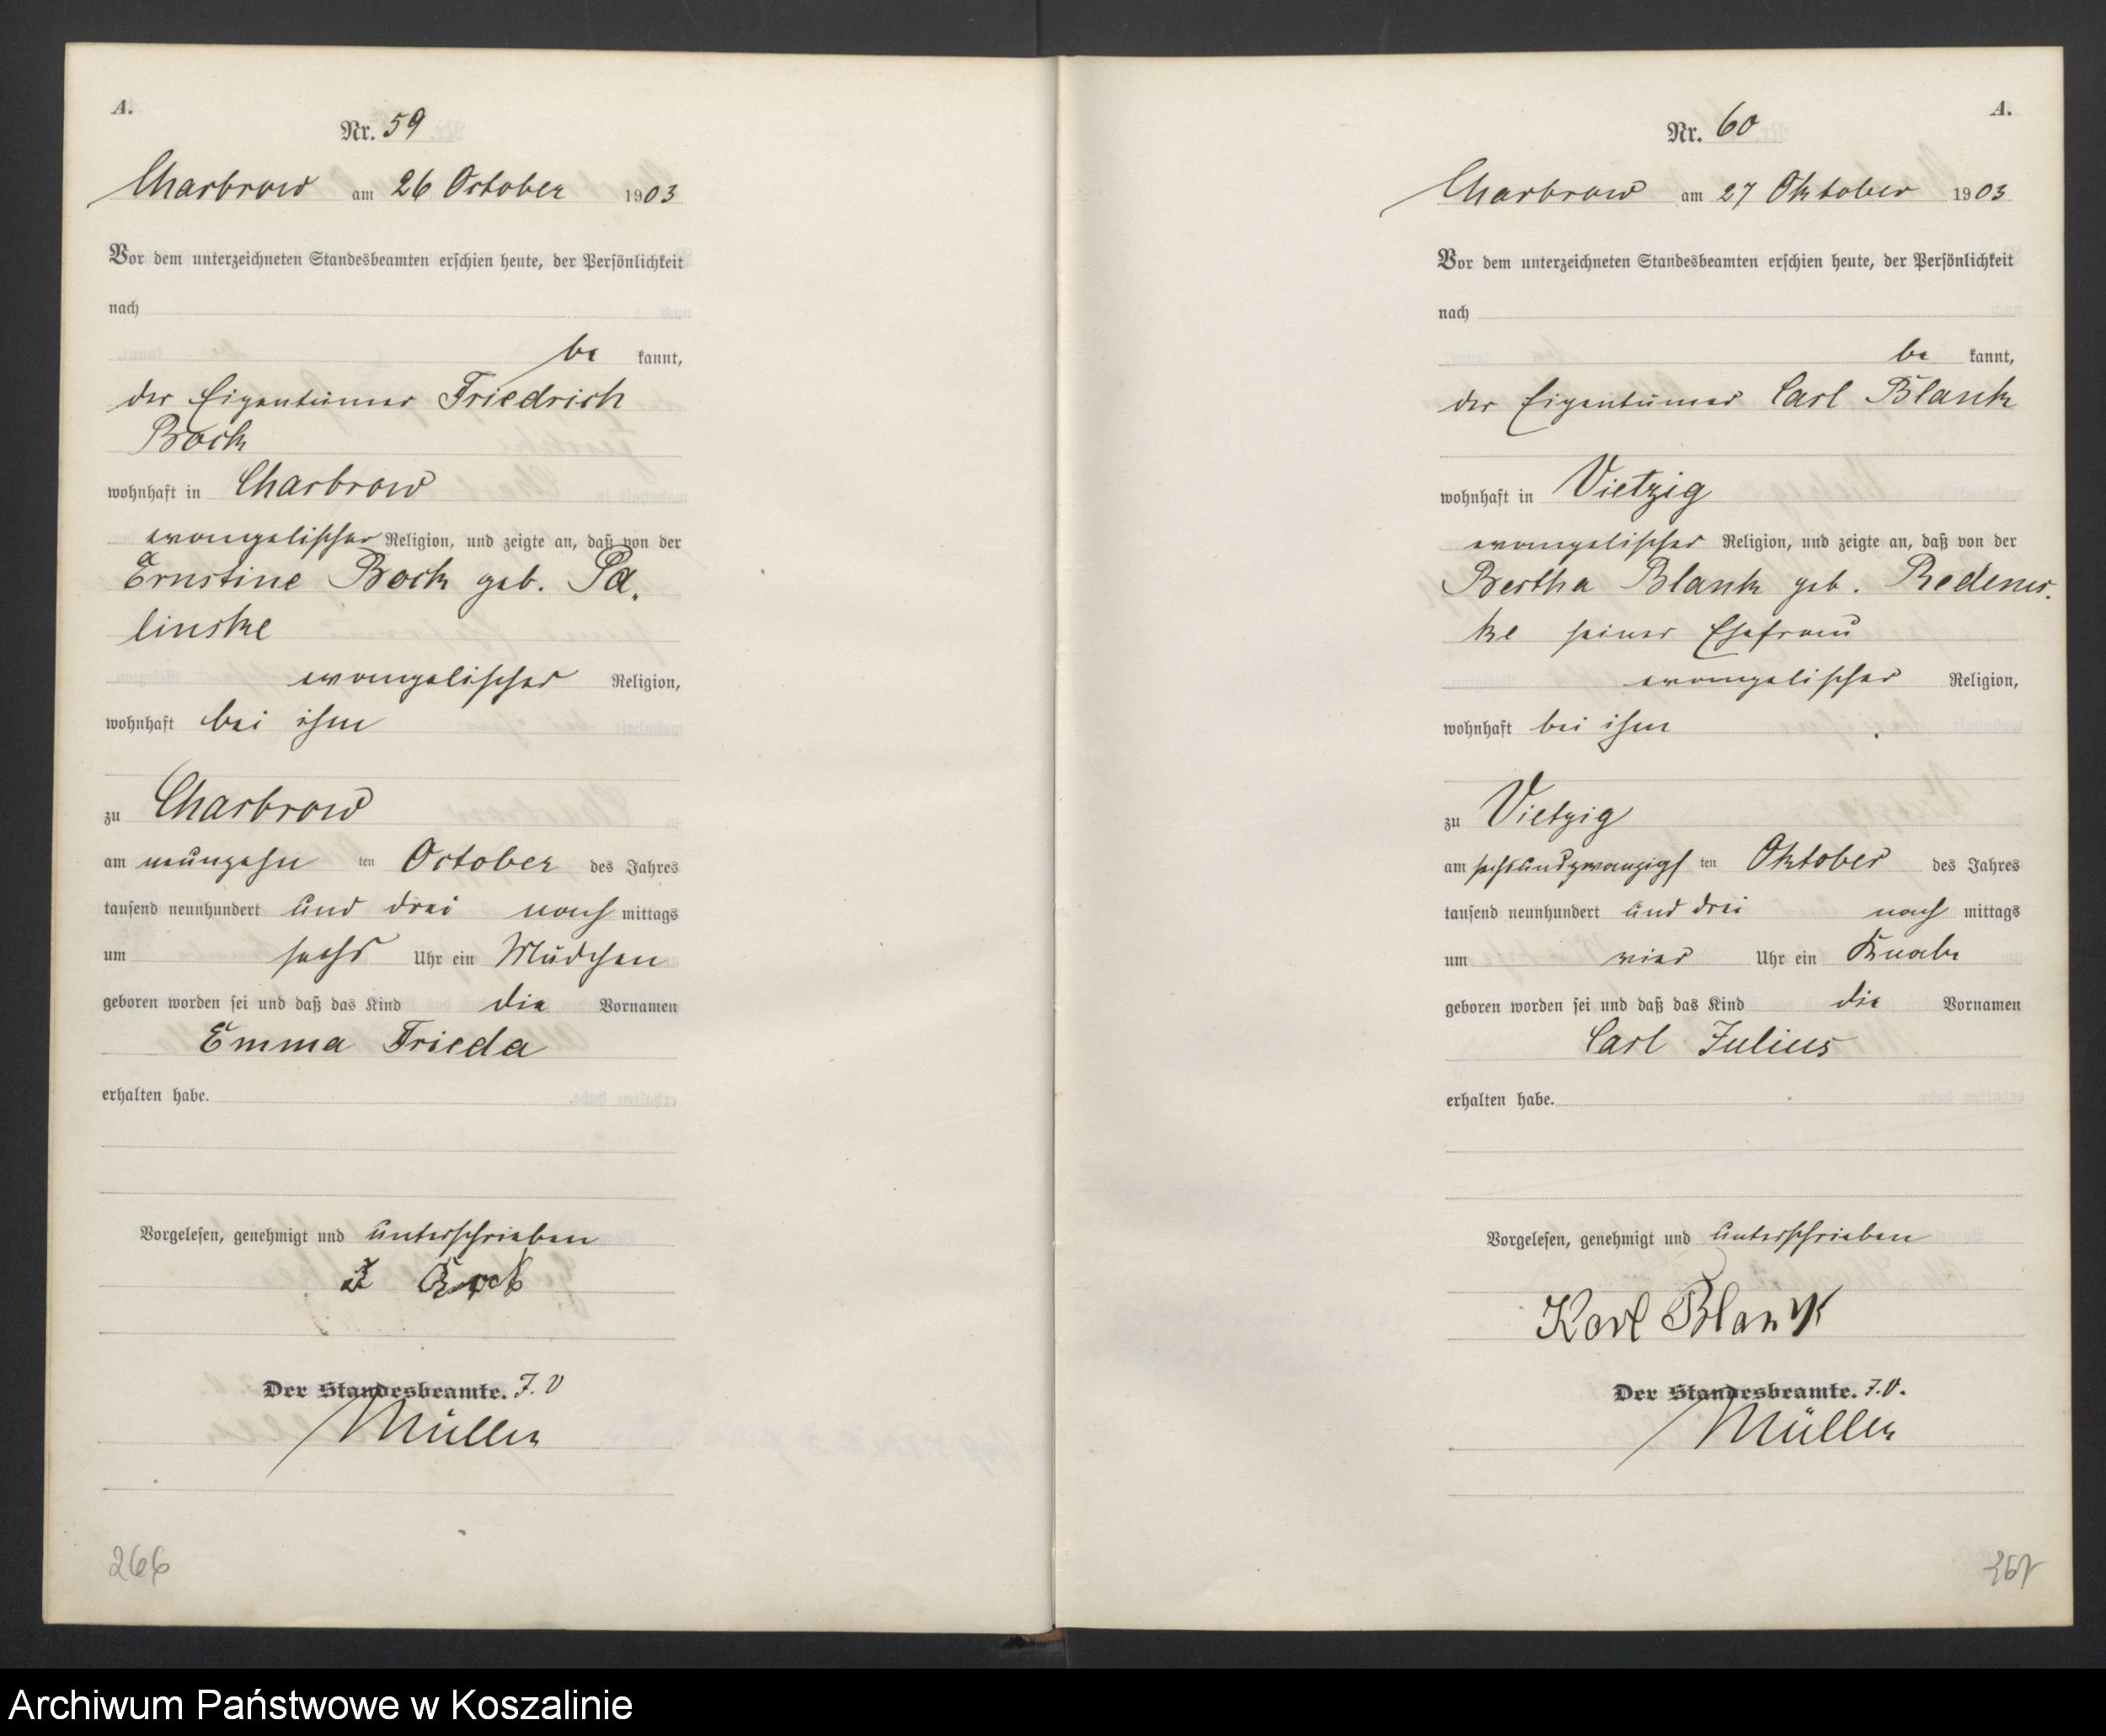 A.
Nr. 59
Charbrow am 26 October 1903
Vor dem unterzeichneten Standesbeamten erschien heute, der Persönlichkeit
nach
be kannt,
der Eigentümer Friedrich
Bock
wohnhaft in Charbrow
evangelischer Religion, und zeigte an, daß von der
Ernstine Bock geb. Pa-
linske
evangelischer Religion,
wohnhaft bei ihm
zu Charbrow
am neunzehn ten October des Jahres
tausend neunhundert und drei nach mittags
um sechs Uhr ein Mädchen
geboren worden sei und daß das Kind die Vornamen
Emma Frieda
erhalten habe.
Vorgelesen, genehmigt und unterschrieben
F Bock
Der Standesbeamte. J. V
Müller
266
A.
Nr. 60
Charbrow am 27 Oktober 1903
Vor dem unterzeichneten Standesbeamten erschien heute, der Persönlichkeit
nach
be kannt,
der Eigentümer Carl Blank
wohnhaft in Vietzig
evangelischer Religion, und zeigte an, daß von der
Bertha Blank geb.
ke seiner Ehefrau
evangelischer Religion,
wohnhaft bei ihm
zu Vietzig
am sechsundzwanzigs ten Oktober des Jahres
tausend neunhundert und drei nach mittags
um vier Uhr ein Knabe
geboren worden sei und daß das Kind die Vornamen
Carl Julius
erhalten habe.
Vorgelesen, genehmigt und unterschrieben
Karl Blank
Der Standesbeamte. J. V.
Müller
267
Archiwum Państwowe w Koszalinie